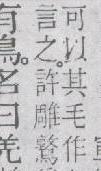 可以其毛作
言之。許雕鷲
有鳥。名曰